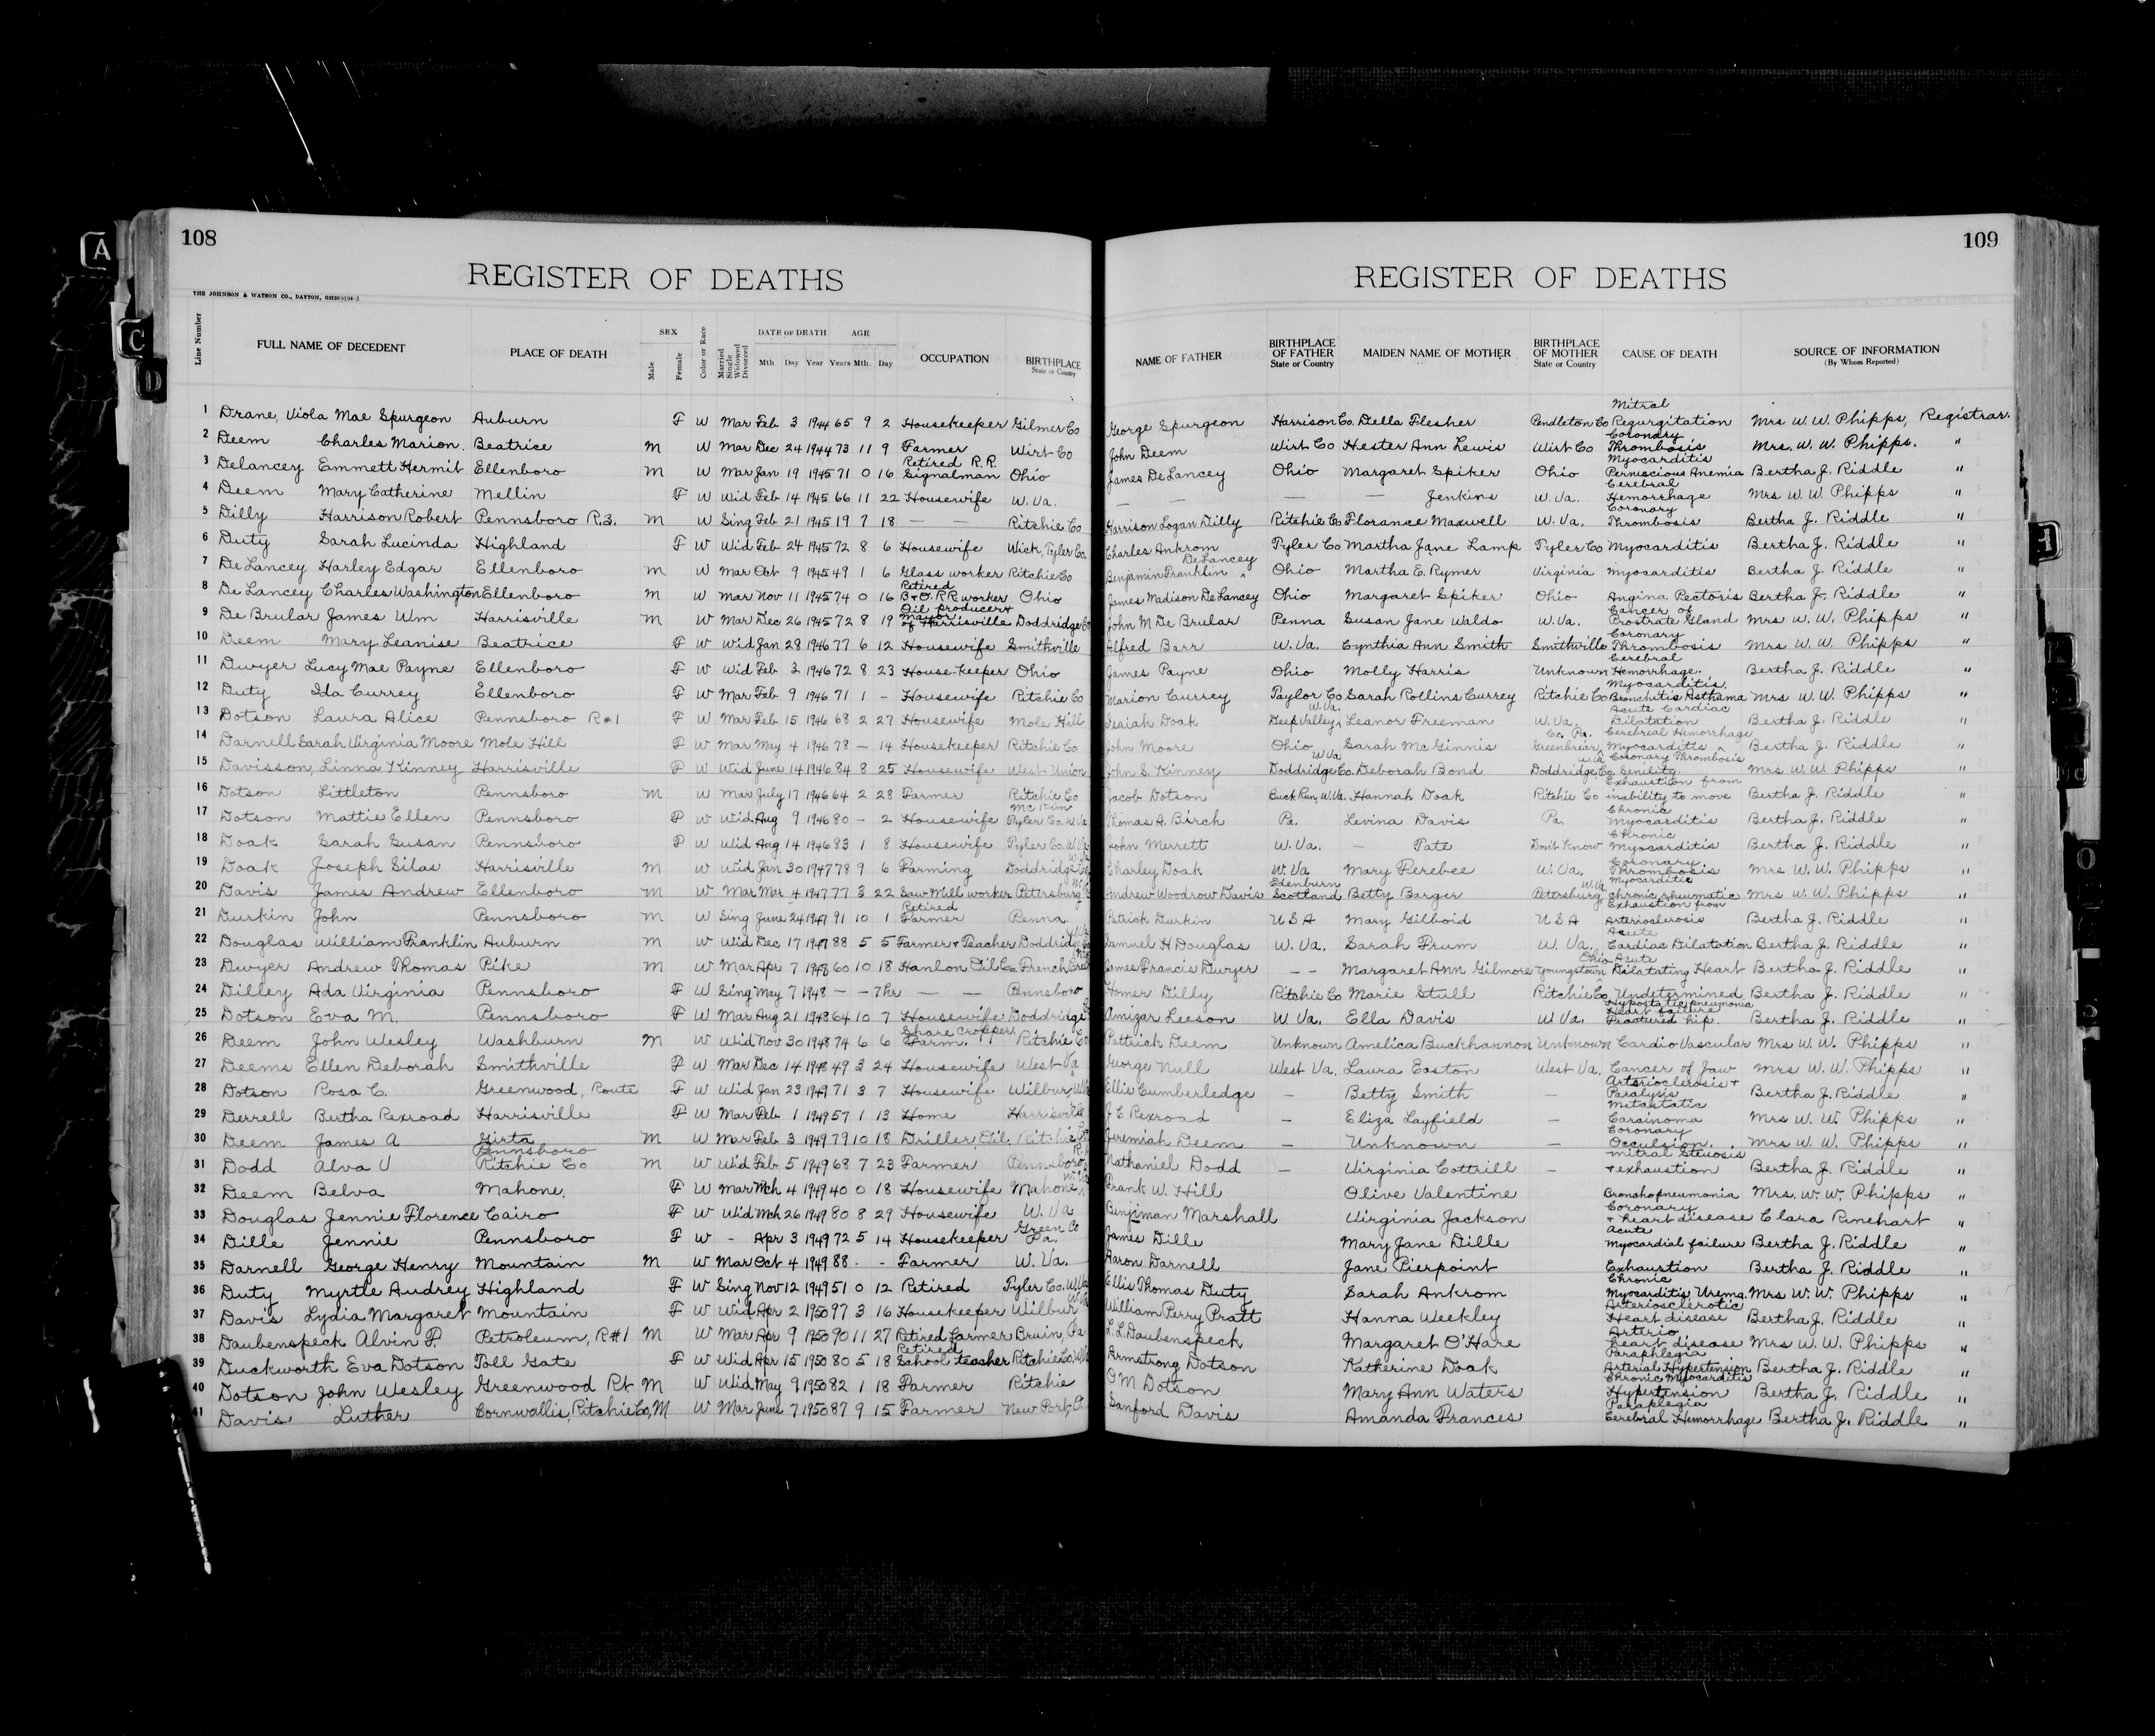 108
REGISTER OF DEATHS
THE JOHNSON & WATSON CO., DAYTON, OHIO
Line Number FULL NAME OF DECEDENT PLACE OF DEATH SEX Male Female Color or Race Married Single Widowed Divorced DATE OF DEATH Mth Day Year AGE Years Mth. Day OCCUPATION BIRTHPLACE State or Country
1 Drane, Viola Mae Spurgeon Auburn F W Mar Feb 3 1944 65 9 2 Housekeeper Gilmer Co
2 Deem Charles Marion. Beatrice M W Mar Dec 24 1944 73 11 9 Farmer Wirt Co
3 Delancey Emmett Hermit Ellenboro M W Mar Jan 19 1945 71 0 16 Retired R.R. Signalman Ohio
4 Deem Mary Catherine Mellin F W Wid Feb 14 1945 66 11 22 Housewife W.Va.
5 Dilly Harrison Robert Pennsboro R.3. M W Sing Feb 21 1945 19 7 18 — — Ritchie Co
6 Duty Sarah Lucinda Highland F W Wid Feb 24 1945 72 8 6 Housewife Wick, Tyler Co.
7 DeLancey Harley Edgar Ellenboro M W Mar Oct 9 1945 49 1 6 Glass worker Ritchie Co
8 DeLancey Charles Washington Ellenboro M W Mar Nov 11 1945 74 0 16 Retired B+O. RR worker Ohio
9 De Brular James Wm Harrisville M W Mar Dec 26 1945 72 8 19 Oil producer + mayor of Harrisville Doddridge Co
10 Deem Mary Leanise Beatrice F W Wid Jan 28 1946 77 6 12 Housewife Smithville
11 Dwyer Lucy Mae Payne Ellenboro F W Wid Feb 3 1946 72 8 23 House-keeper Ohio
12 Duty Ida Currey Ellenboro F W Mar Feb 9 1946 71 1 - Housewife Ritchie Co
13 Dotson Laura Alice Pennsboro R#1 F W Mar Feb 15 1946 68 2 27 Housewife Mole Hill
14 Darnell Sarah Virginia Moore Mole Hill F W Mar May 4 1946 78 — 14 Housekeeper Ritchie Co
15 Davisson, Linna Kinney Harrisville F W Wid June 14 1946 84 8 25 Housewife West Union
16 Dotson Littleton Pennsboro M W Mar July 17 1946 64 2 28 Farmer Ritchie Co
17 Dotson Mattie Ellen Pennsboro F W Wid Aug 9 1946 80 - 2 Housewife McKim Tyler Co. W.Va
18 Doak Sarah Susan Pennsboro F W Wid Aug 14 1946 83 1 8 Housewife Tyler Co. W.Va
19 Doak Joseph Silas Harrisville M W Wid Jan 30 1947 78 9 6 Farming Doddridge Co
20 Davis James Andrew Ellenboro M W Mar Mar 4 1947 77 3 22 Saw Mill worker Petersburg
21 Durkin John Pennsboro M W Sing June 24 1947 91 10 1 Retired Farmer Penna
22 Douglas William Franklin Auburn M W Wid Dec 17 1947 88 5 5 Farmer + Teacher Doddridge
23 Dwyer Andrew Thomas Pike M W Mar Apr 7 1948 60 10 18 Hanlon Oil Co. French Creek
24 Dilley Ada Virginia Pennsboro F W Sing May 7 1948 — — 7hr — — Pennsboro
25 Dotson Eva M. Pennsboro F W Mar Aug 21 1948 64 10 7 Housewife Doddridge
26 Deem John Wesley Washburn M W Wid Nov 30 1948 74 6 6 Share cropper Farm. Ritchie Co
27 Deems Ellen Deborah Smithville F W Mar Dec 14 1948 49 3 24 Housewife West Va
28 Dotson Rosa C. Greenwood, Route F W Wid Jan 23 1949 71 3 7 Housewife Wilbur
29 Derrell Bertha Rexroad Harrisville F W Mar Feb 1 1949 57 1 13 Home Harrisville
30 Deem James A Girta M W Mar Feb 3 1949 79 10 18 Driller, Oil. Ritchie Co
31 Dodd Alva V Pennsboro Ritchie Co M W Wid Feb 5 1949 68 7 23 Farmer Pennsboro
32 Deem Belva Mahone. F W Mar Mch 4 1949 40 0 18 Housewife Mahone
33 Douglas Jennie Florence Cairo F W Wid Mch 26 1949 80 8 29 Housewife W. Va
34 Dille Jennie Pennsboro F W - Apr 3 1949 72 5 14 Housekeeper Green Co Pa.
35 Darnell George Henry Mountain M W Mar Oct 4 1949 88 - - Farmer W. Va.
36 Duty Myrtle Audrey Highland F W Sing Nov 12 1949 51 0 12 Retired Tyler Co. W.Va
37 Davis Lydia Margaret Mountain F W Wid Apr 2 1950 97 3 16 Housekeeper Wilbur
38 Daubenspeck Alvin F. Petroleum, R#1 M W Mar Apr 9 1950 90 11 27 Retired farmer Bruin, Pa
39 Duckworth Eva Dotson Toll Gate F W Wid Apr 15 1950 80 5 18 Retired School teacher Ritchie Co.
40 Dotson John Wesley Greenwood Rt M W Wid May 9 1950 82 1 18 Farmer Ritchie
41 Davis Luther Cornwallis, Ritchie Co, M W Mar June 7 1950 87 9 15 Farmer New Port, O.
109
REGISTER OF DEATHS
NAME OF FATHER BIRTHPLACE OF FATHER State or Country MAIDEN NAME OF MOTHER BIRTHPLACE OF MOTHER State or Country CAUSE OF DEATH SOURCE OF INFORMATION (By Whom Reported)
George Spurgeon Harrison Co. Della Flesher Pendleton Co Mitral Regurgitation Mrs W. W. Phipps, Registrar.
John Deem Wirt Co Hester Ann Lewis Wirt Co Coronary Thrombosis Mrs. W. W. Phipps. "
James DeLancey Ohio Margaret Spiker Ohio Myocarditis Perniscious Anemia Bertha J. Riddle "
— — — Jenkins W. Va. Cerebral Hemorrhage Mrs W. W. Phipps "
Harrison Logan Dilly Ritchie Co Florance Maxwell W. Va. Coronary Thrombosis Bertha J. Riddle "
Charles Ankrom Tyler Co Martha Jane Lamp Tyler Co Myocarditis Bertha J. Riddle "
Benjamin Franklin DeLancey Ohio Martha E. Rymer Virginia Myocarditis Bertha J. Riddle "
James Madison DeLancey Ohio Margaret Spiker Ohio Angina Pectoris Bertha J. Riddle "
John M De Brular Penna Susan Jane Waldo W. Va. Cancer of Prostrate Gland Mrs W. W. Phipps "
Alfred Barr W. Va. Cynthia Ann Smith Smithville Coronary Thrombosis Mrs W. W. Phipps "
James Payne Ohio Molly Harris Unknown Cerebral Hemorrhage. Bertha J. Riddle "
Marion Currey Taylor Co Sarah Rollins Currey Ritchie Co Myocarditis, Bronchitis Asthama Mrs W. W. Phipps "
Isaiah Doak Deep Valley, W.Va. Leanor Freeman W. Va. Acute Cardiac Dilatation Bertha J. Riddle "
John Moore Ohio Sarah McGinnis Greenbriar Co. Pa. Cerebreal Hemorrhage Myocarditis Bertha J. Riddle "
John S. Kinney Doddridge Co. W.Va Deborah Bond Doddridge Co. W.Va Coronary Thrombosis Senility. Mrs W. W. Phipps "
Jacob Dotson Buck Run, W.Va. Hannah Doak Ritchie Co Exhaustion from inability to move Bertha J. Riddle "
Thomas A. Birch Pa. Levina Davis Pa. Chronic Myocarditis Bertha J. Riddle "
John Merrett W. Va. — Tate Don't Know Chronic Myocarditis Bertha J. Riddle "
Charley Doak W. Va Mary Ferebee W. Va. Coronary Thrombosis Mrs W. W. Phipps "
Andrew Woodrow Davis Edenburn Scotland Betty Barger Petersburg W.Va. Myocarditis chronic rheumatic Mrs W. W. Phipps "
Patrick Durkin U S A Mary Gilboid U S A Exhaustion from Arterioslerosis Bertha J. Riddle "
Samuel H Douglas W. Va. Sarah Frum W. Va. Acute Cardiac Dilatation Bertha J. Riddle "
James Francis Dwyer - - Margaret Ann Gilmore Youngstown Ohio Acute Dilatating Heart Bertha J. Riddle "
Homer Dilly Ritchie Co Marie Stull Ritchie Co Undetermined Bertha J. Riddle "
Amizar Leeson W Va. Ella Davis W Va. Hypostatic pneumonia Heart failure Fractured hip. Bertha J. Riddle "
Pattrick Deem Unknown Amelica Buckhannon Unknown Cardio Vascular Mrs W. W. Phipps "
George Null West Va. Laura Easton West Va. Cancer of Jaw Mrs W. W. Phipps "
Ellis Cumberledge — Betty Smith — Arterioclerosis + Paralysis Bertha J. Riddle "
J E Rexroad — Eliza Layfield — Metastatic Carcinoma Mrs W. W. Phipps "
Jeremiah Deem — Unknown — Coronary Occulsion. Mrs W. W. Phipps "
Nathaniel Dodd — Virginia Cottrill — Mitral Stenosis + exhaustion Bertha J. Riddle "
Frank W. Hill Olive Valentine Bronchopneumonia Mrs. W. W. Phipps "
Benjiman Marshall Virginia Jackson Coronary + heart disease Clara Rinehart "
James Dille Mary Jane Dille Acute Myocardial failure Bertha J. Riddle "
Aaron Darnell Jane Pierpoint Exhaustion Bertha J. Riddle "
Ellis Thomas Duty Sarah Ankrom Chronic Myocarditis Urema. Mrs W. W. Phipps "
William Perry Pratt Hanna Weekley Arteriosclerotic Heart disease Bertha J. Riddle "
L. L. Daubenspeck Margaret O'Hare Arterio heart disease Mrs W. W. Phipps "
Armstrong Dotson Katherine Doak Paraphlegia Arterial Hypertension Bertha J. Riddle "
O M Dotson Mary Ann Waters Chronic Myocarditis Hypertension Bertha J. Riddle "
Sanford Davis Amanda Frances Paraplegia Cerebral Hemorrhage Bertha J. Riddle "
A
C
D